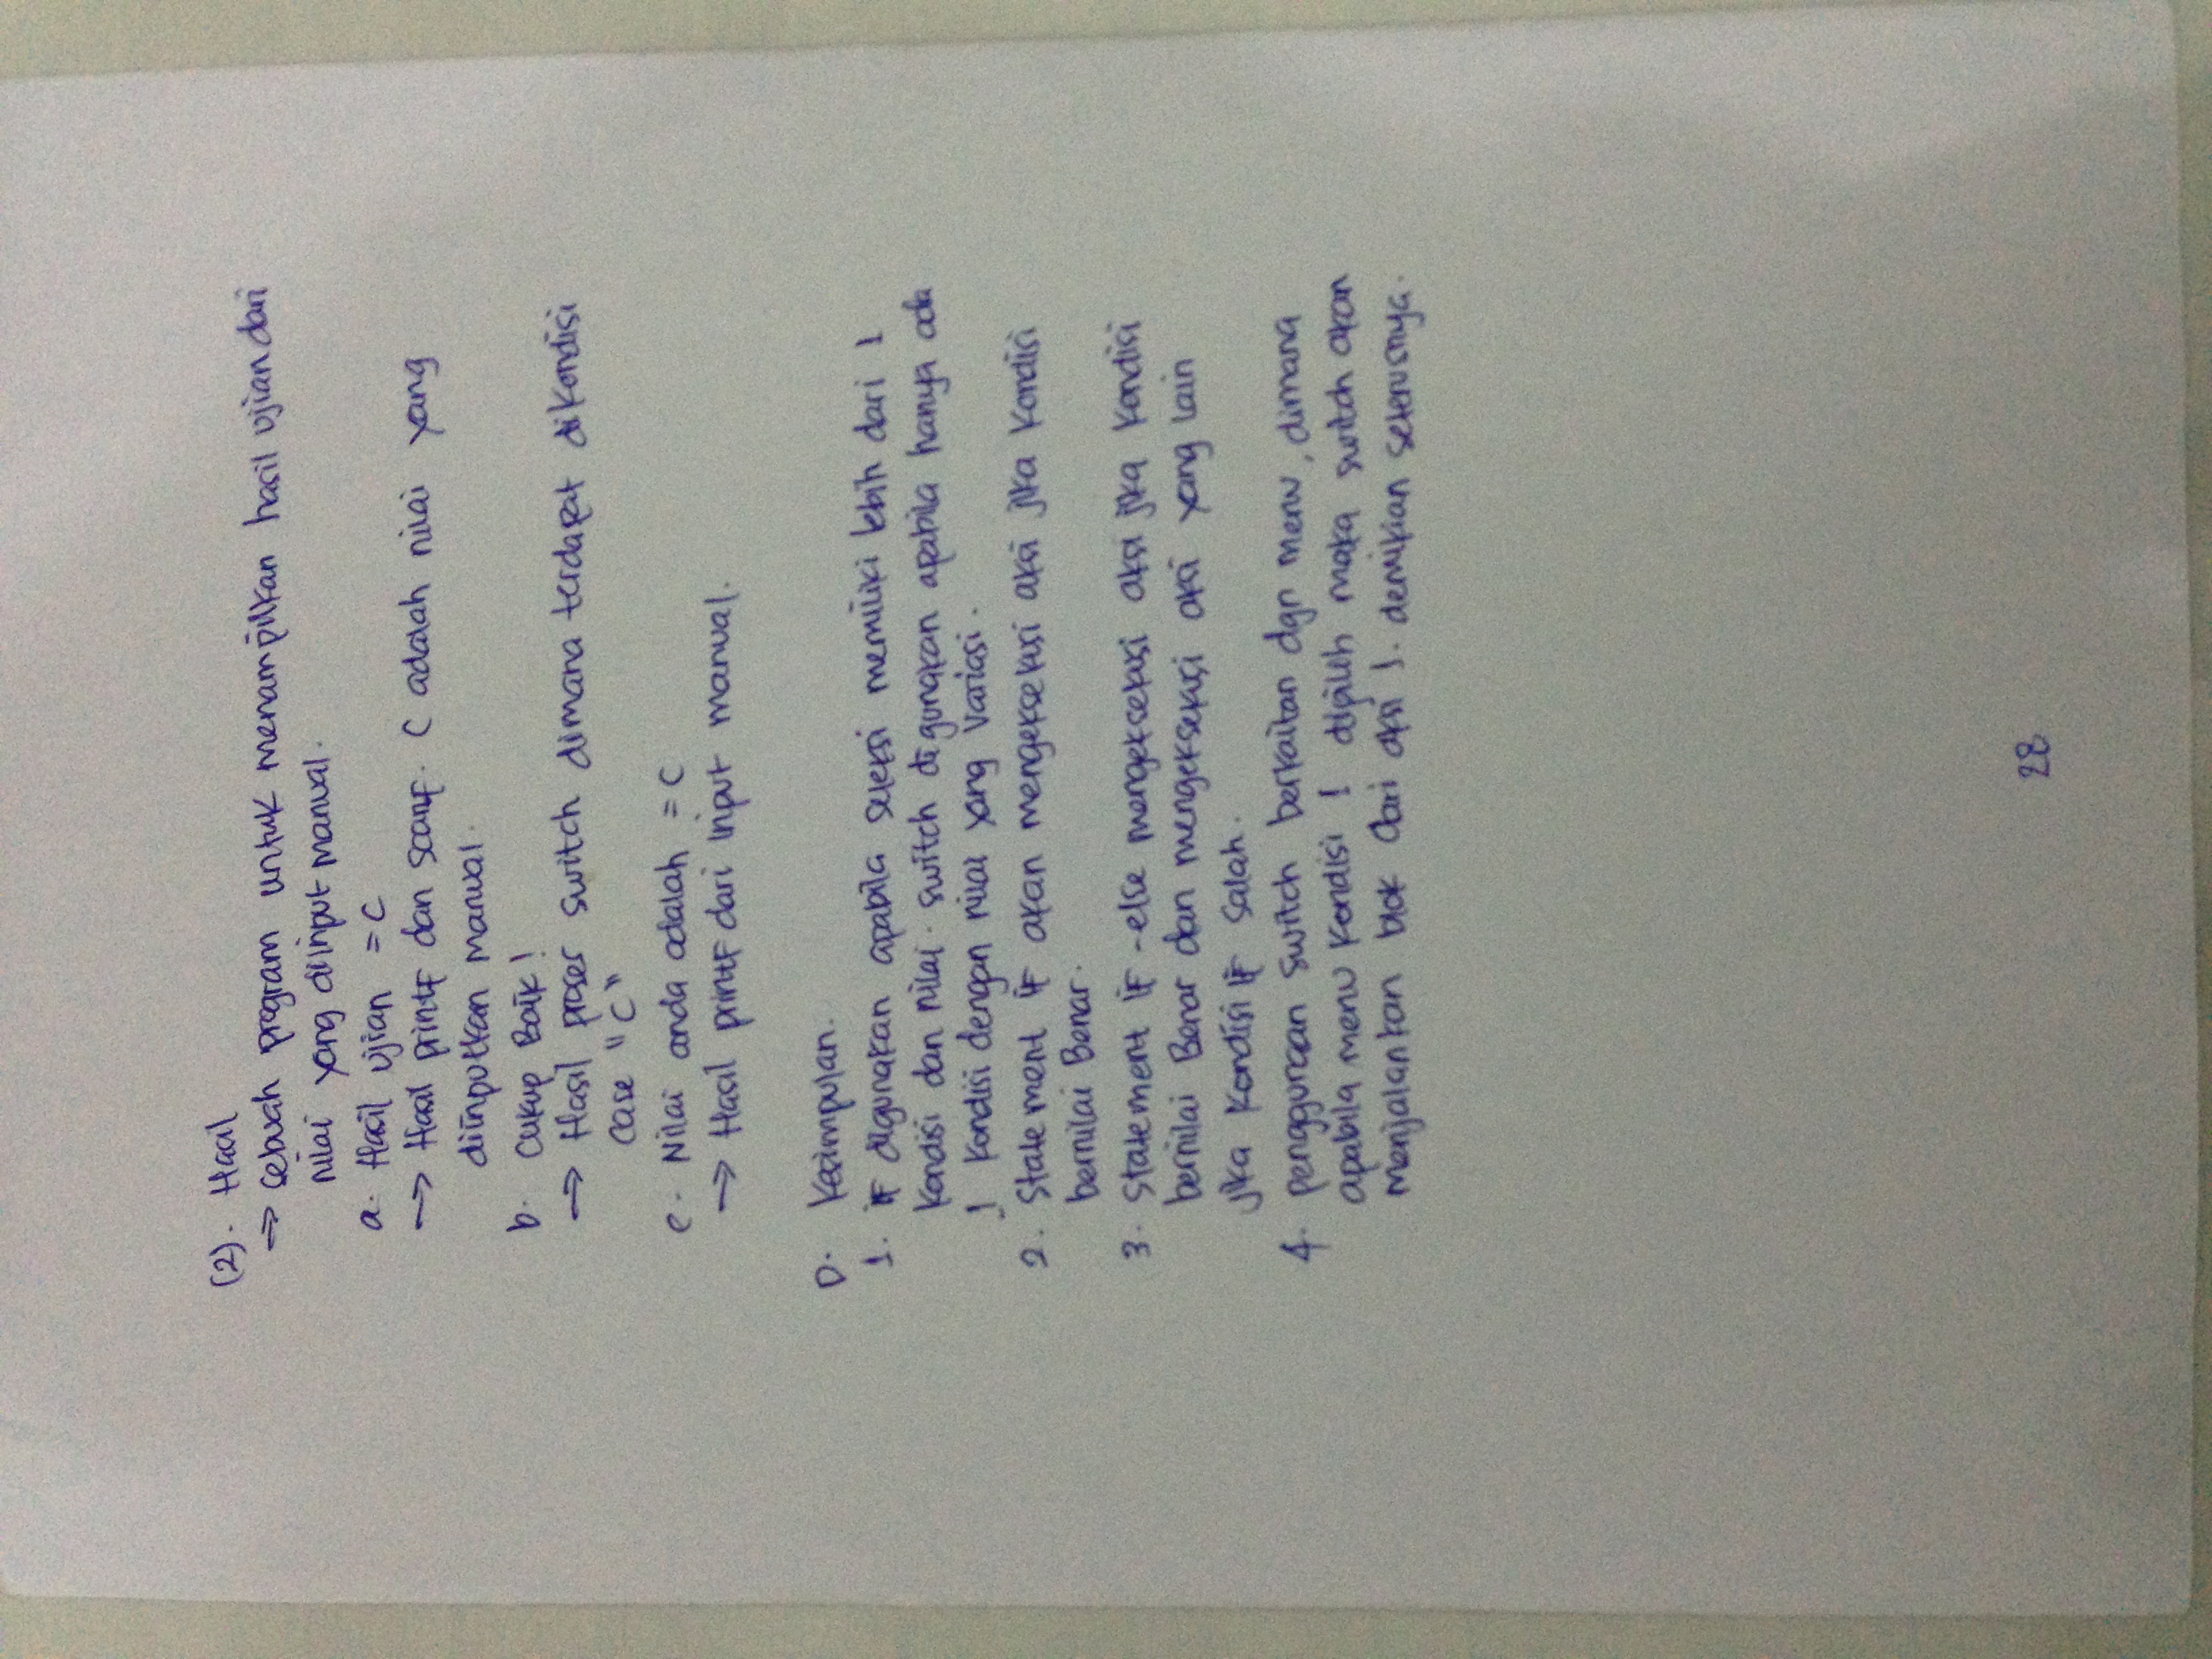 (2). Hasil
→ sebuah program untuk menampilkan hasil ujian dari
nilai yang diinput manual.
a. Hasil ujian = C
→ Hasil printf dan scanf. C adalah nilai yang
diinputkan manual.
b. Cukup Baik!
→ Hasil proses switch dimana terdapat dikondisi
case "C"
c. Nilai anda adalah = C
→ Hasil printf dari input manual.
D. Kesimpulan.
1. if digunakan apabila seleksi memiliki lebih dari 1
kondisi dan nilai. switch digunakan apabila hanya ada
1 kondisi dengan nilai yang variasi.
2. Statement if akan mengeksekusi aksi jika kondisi
bernilai Benar.
3. Statement if-else mengeksekusi aksi jika kondisi
bernilai Benar dan mengeksekusi aksi yang lain
jika kondisi if salah.
4. penggunaan switch berkaitan dgn menu, dimana
apabila menu kondisi 1 dipilih maka switch akan
menjalankan blok dari aksi 1. demikian seterusnya.
28